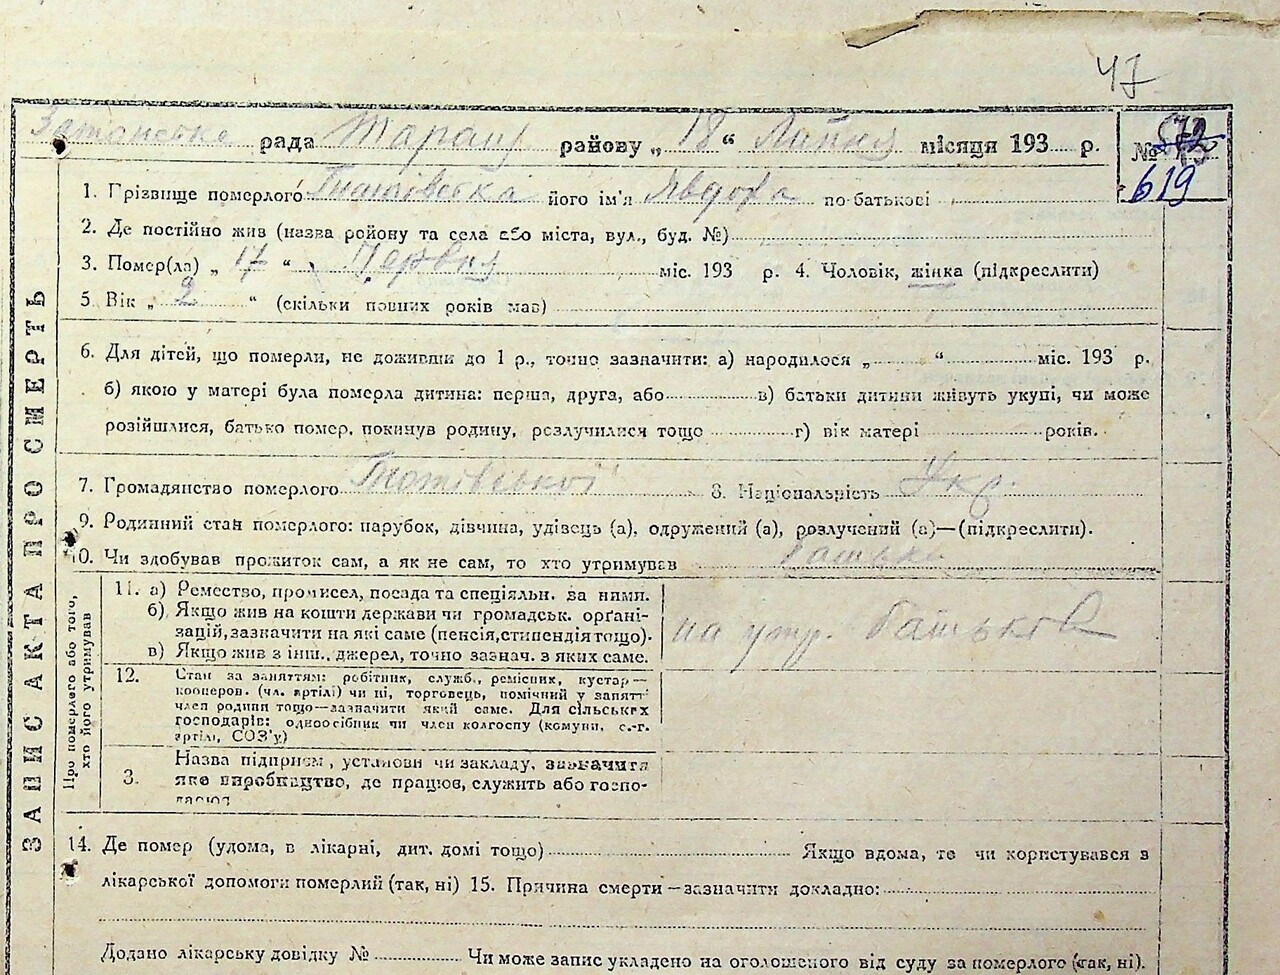 47
рада Таращ району „ 18 “ Липня місяця 193 р.
№ 572
619
ЗАПИС АКТА ПРО СМЕРТЬ
1. Прізвище померлого його ім'я Явдоха по-батькові
2. Де постійно жив (назва району та села або міста, вул., буд. №)
3. Помер(ла) „ 17 “ Червня міс. 193 р. 4. Чоловік, жінка (підкреслити)
5. Вік „ 2 “ (скільки повних років мав)
6. Для дітей, що померли, не доживши до 1 р., точно зазначити: а) народилося „ “ міс. 193 р.
б) якою у матері була померла дитина: перша, друга, або в) батьки дитини живуть укупі, чи може
розійшлися, батько помер, покинув родину, розлучилися тощо г) вік матері років.
7. Громадянство померлого 8. Національність Укр.
9. Родинний стан померлого: парубок, дівчина, удівець (а), одружений (а), розлучений (а)—(підкреслити).
10. Чи здобував прожиток сам, а як не сам, то хто утримував батьки
Про померлого або того, хто його утримував
11. а) Ремество, промисел, посада та спеціяльн. за ними.
б) Якщо жив на кошти держави чи громадськ. орґані-
зацій, зазначити на які саме (пенсія, стипендія тощо).
в) Якщо жив з інш., джерел, точно зазнач. з яких саме.
на утр. батьків
12. Стан за заняттям: робітник, служб., ремісник, кустар—
кооперов. (чл. артілі) чи ні, торговець, помічний у занятті
член родини тощо—зазначити який саме. Для сільських
господарів: одноосібник чи член колгоспу (комуни, с.-г.
артілі, СОЗ'у)
3. Назва підприєм, установи чи закладу, зазначити
яке виробництво, де працює, служить або госпо-
дарює
14. Де помер (удома, в лікарні, дит. домі тощо) Якщо вдома, то чи користувався з
лікарської допомоги померлий (так, ні) 15. Причина смерти—зазначити докладно:
Додано лікарську довідку № Чи може запис укладено на оголошеного від суду за померлого (так, ні).